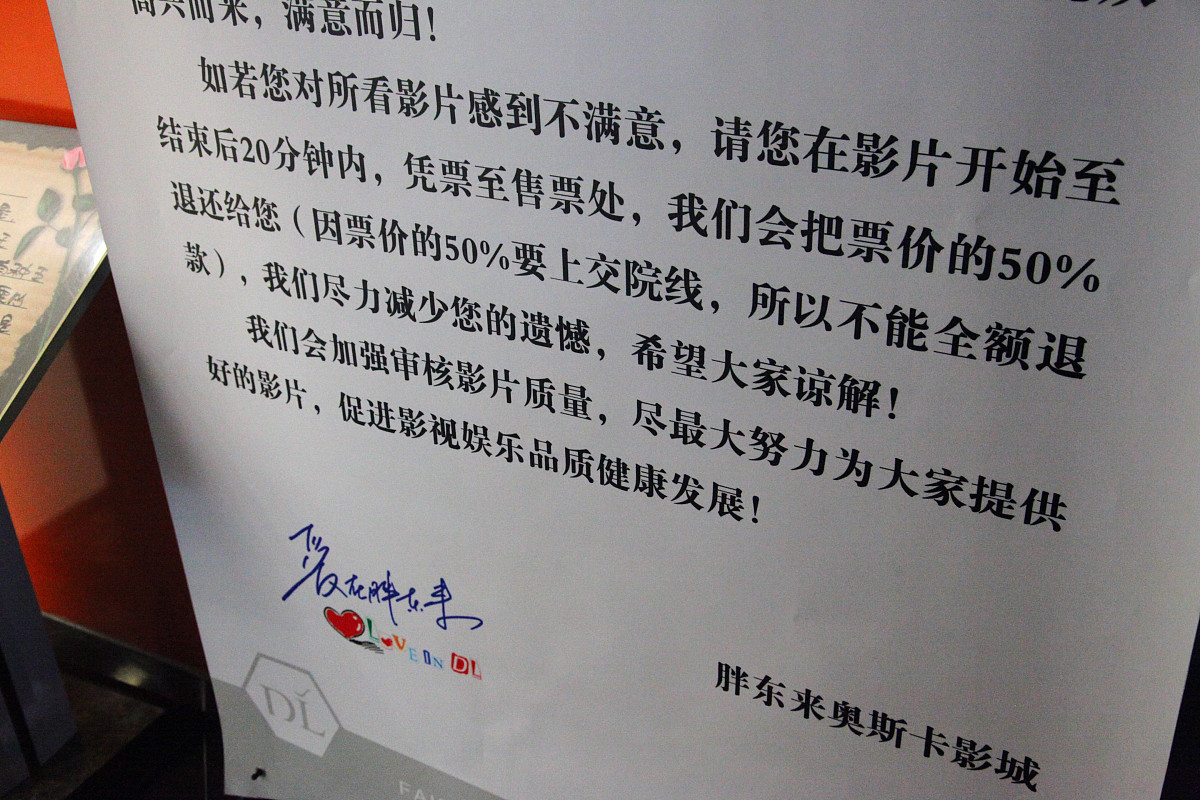 高兴而来，满意而归！
如若您对所看影片感到不满意，请您在影片开始至
结束后20分钟内，凭票至售票处，我们会把票价的50%
退还给您（因票价的50%要上交院线，所以不能全额退
款），我们尽力减少您的遗憾，希望大家谅解！
我们会加强审核影片质量，尽最大努力为大家提供
好的影片，促进影视娱乐品质健康发展！
爱在胖东来
LOVE IN DL
DL
胖东来奥斯卡影城